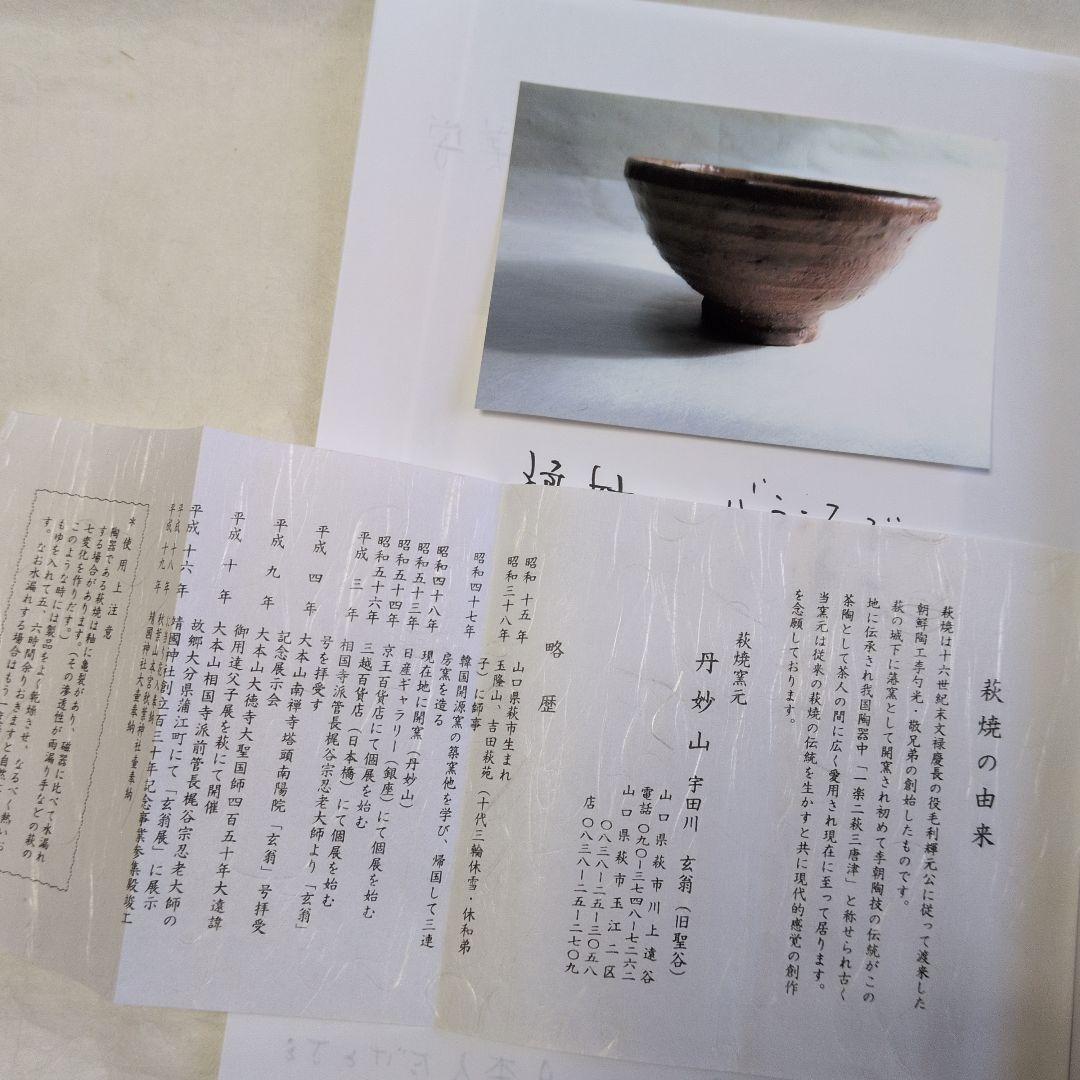 萩焼の由来
萩焼は十六世紀末文禄慶長の役毛利輝元公に従って渡来した
朝鮮陶工李勺光・敬兄弟の創始したものです。
萩の城下に藩窯として開窯され初めて李朝陶技の伝統がこの
地に伝承され我国陶器中「一楽二萩三唐津」と称せられ古く
茶陶として茶人の間に広く愛用され現在に至って居ります。
当窯元は従来の萩焼の伝統を生かすと共に現代的感覚の創作
を念願しております。
萩焼窯元
丹妙山 宇田川 玄翁(旧聖谷)
山口県萩市川上遠谷
電話〇九〇―三七四八―七二六二
山口県萩市玉江二区
〇八三八―二五―三〇五八
店 〇八三八―二五―二七〇九
略歴
昭和十五年 山口県萩市生まれ
昭和三十八年 玉隆山、吉田萩苑(十代三輪休雪・休和弟
子)に師事
昭和四十七年 韓国開源窯の築窯他を学び、帰国して三連
房窯を造る
昭和四十八年 現在地に開窯(丹妙山)
昭和五十三年 日産ギャラリー(銀座)にて個展を始む
昭和五十四年 京王百貨店にて個展を始む
昭和五十六年 三越百貨店(日本橋)にて個展を始む
平成三年 相国寺派管長梶谷宗忍老大師より「玄翁」
号を拝受す
平成四年 大本山南禅寺塔頭南陽院「玄翁」号拝受
記念展示会
平成九年 大本山大徳寺大聖国師四百五十年大遠諱
御用達父子展を萩にて開催
平成十年 大本山相国寺派前管長梶谷宗忍老大師の
故郷大分県蒲江町にて「玄翁展」に展示
平成十六年 靖國神社創立百三十年記念事業参集殿竣工
平成十八年 秋葉山本宮秋葉神社
平成十九年 靖國神社大皿奉納
*使用上注意
陶器である萩焼は釉に亀裂があり、磁器に比べて水漏れ
する場合があります。(その滲透性が雨漏り手などの萩の
七変化を作りだす。)
このような時には製品をよく乾燥させ、なるべく熱いお
もゆを入れて五、六時間余りおきますと自然に
す。なお水漏れする場合はもう一度